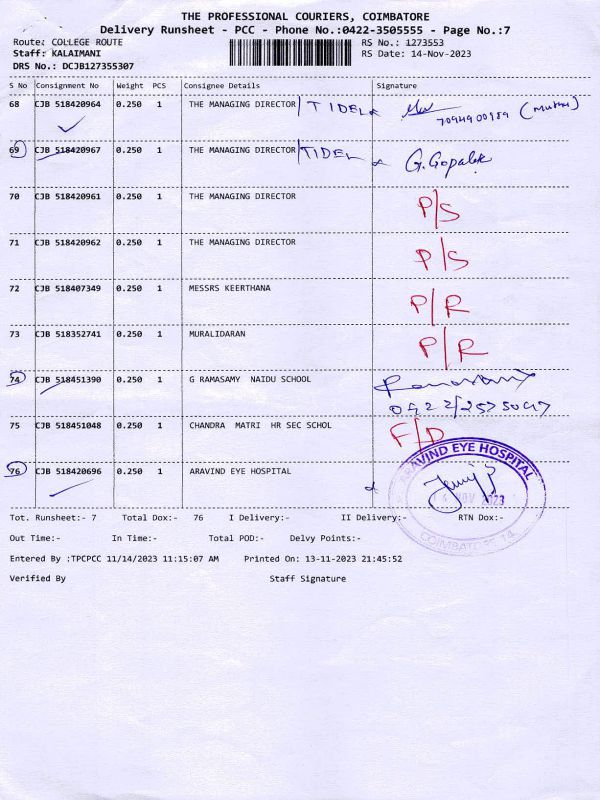 THE PROFESSIONAL COURIERS, COIMBATORE
Delivery Runsheet - PCC - Phone No.:0422-3505555 - Page No.:7
Route: COLLEGE ROUTE RS No.: 1273553
Staff: KALAIMANI RS Date: 14-Nov-2023
DRS No.: DCJB127355307
S No Consignment No Weight PCS Consignee Details Signature
68 CJB 518420964 0.250 1 THE MANAGING DIRECTOR TIDEL
69 CJB 518420967 0.250 1 THE MANAGING DIRECTOR TIDEL G.Gopal
70 CJB 518420961 0.250 1 THE MANAGING DIRECTOR P/S
71 CJB 518420962 0.250 1 THE MANAGING DIRECTOR P/S
72 CJB 518407349 0.250 1 MESSRS KEERTHANA P/R
73 CJB 518352741 0.250 1 MURALIDARAN P/R
74 CJB 518451390 0.250 1 G RAMASAMY NAIDU SCHOOL
75 CJB 518451048 0.250 1 CHANDRA MATRI HR SEC SCHOL F/D
76 CJB 518420696 0.250 1 ARAVIND EYE HOSPITAL
ARAVIND EYE HOSPITAL
14 NOV 2023
COIMBATORE 14
Tot. Runsheet:- 7 Total Dox:- 76 I Delivery:- II Delivery:- RTN Dox:-
Out Time:- In Time:- Total POD:- Delvy Points:-
Entered By :TPCPCC 11/14/2023 11:15:07 AM Printed On: 13-11-2023 21:45:52
Verified By Staff Signature